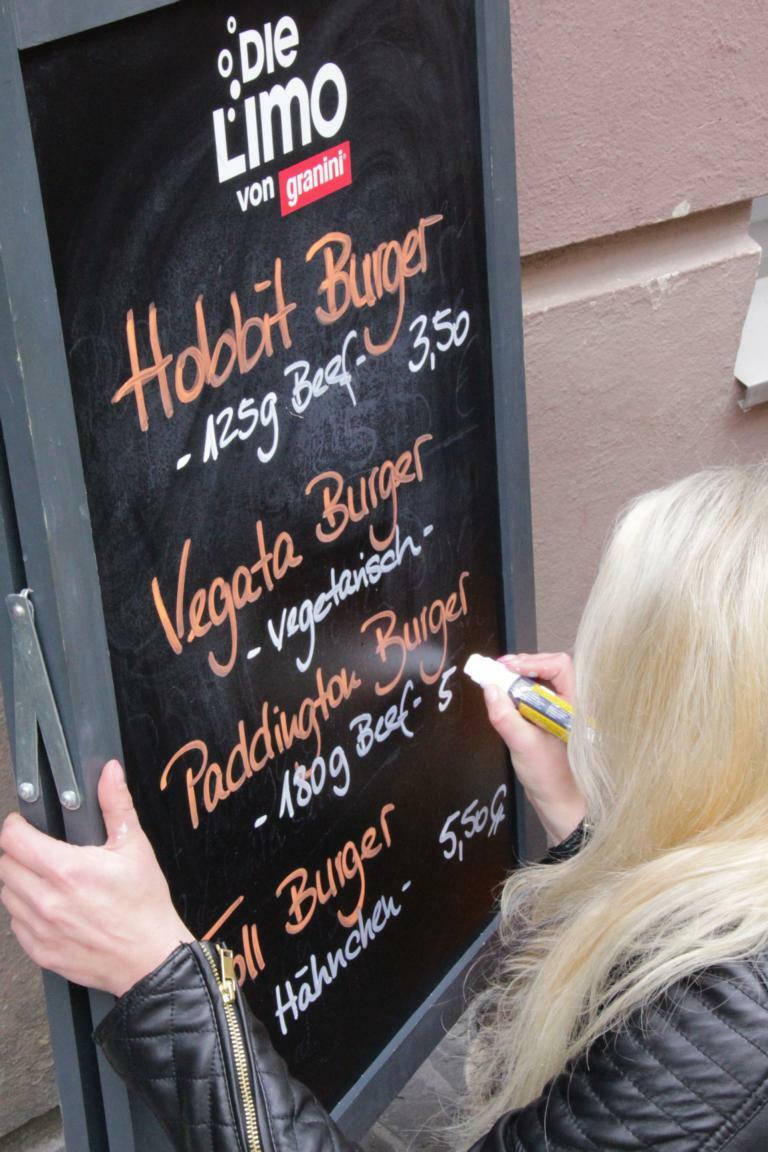 DIE
LIMO
von granini
Hobbit Burger
- 125g Beef - 3,50
Vegata Burger
- vegetarisch -
Paddington Burger
- 180g Beef - 5
Toll Burger
Hähnchen - 5,50€